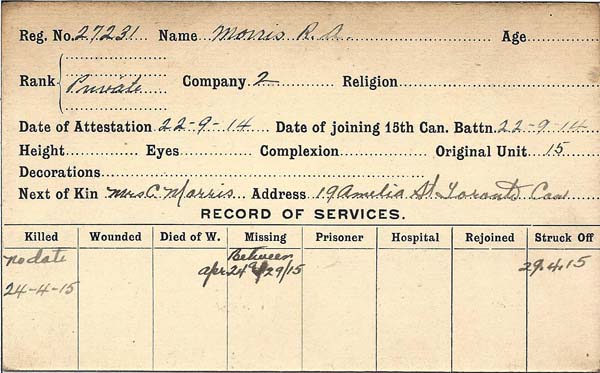 Reg. No. 27231 Name Morris R. A. Age
Rank Private Company 2 Religion
Date of Attestation 22-9-14 Date of joining 15th Can. Battn. 22-9-14
Height Eyes Complexion Original Unit 15
Decorations
Next of Kin Mrs C Morris Address 19 Amelia St Toronto Can
RECORD OF SERVICES.
Killed Wounded Died of W. Missing Prisoner Hospital Rejoined Struck Off
no date Between 29.4.15
24-4-15 apr 24 & 29/15